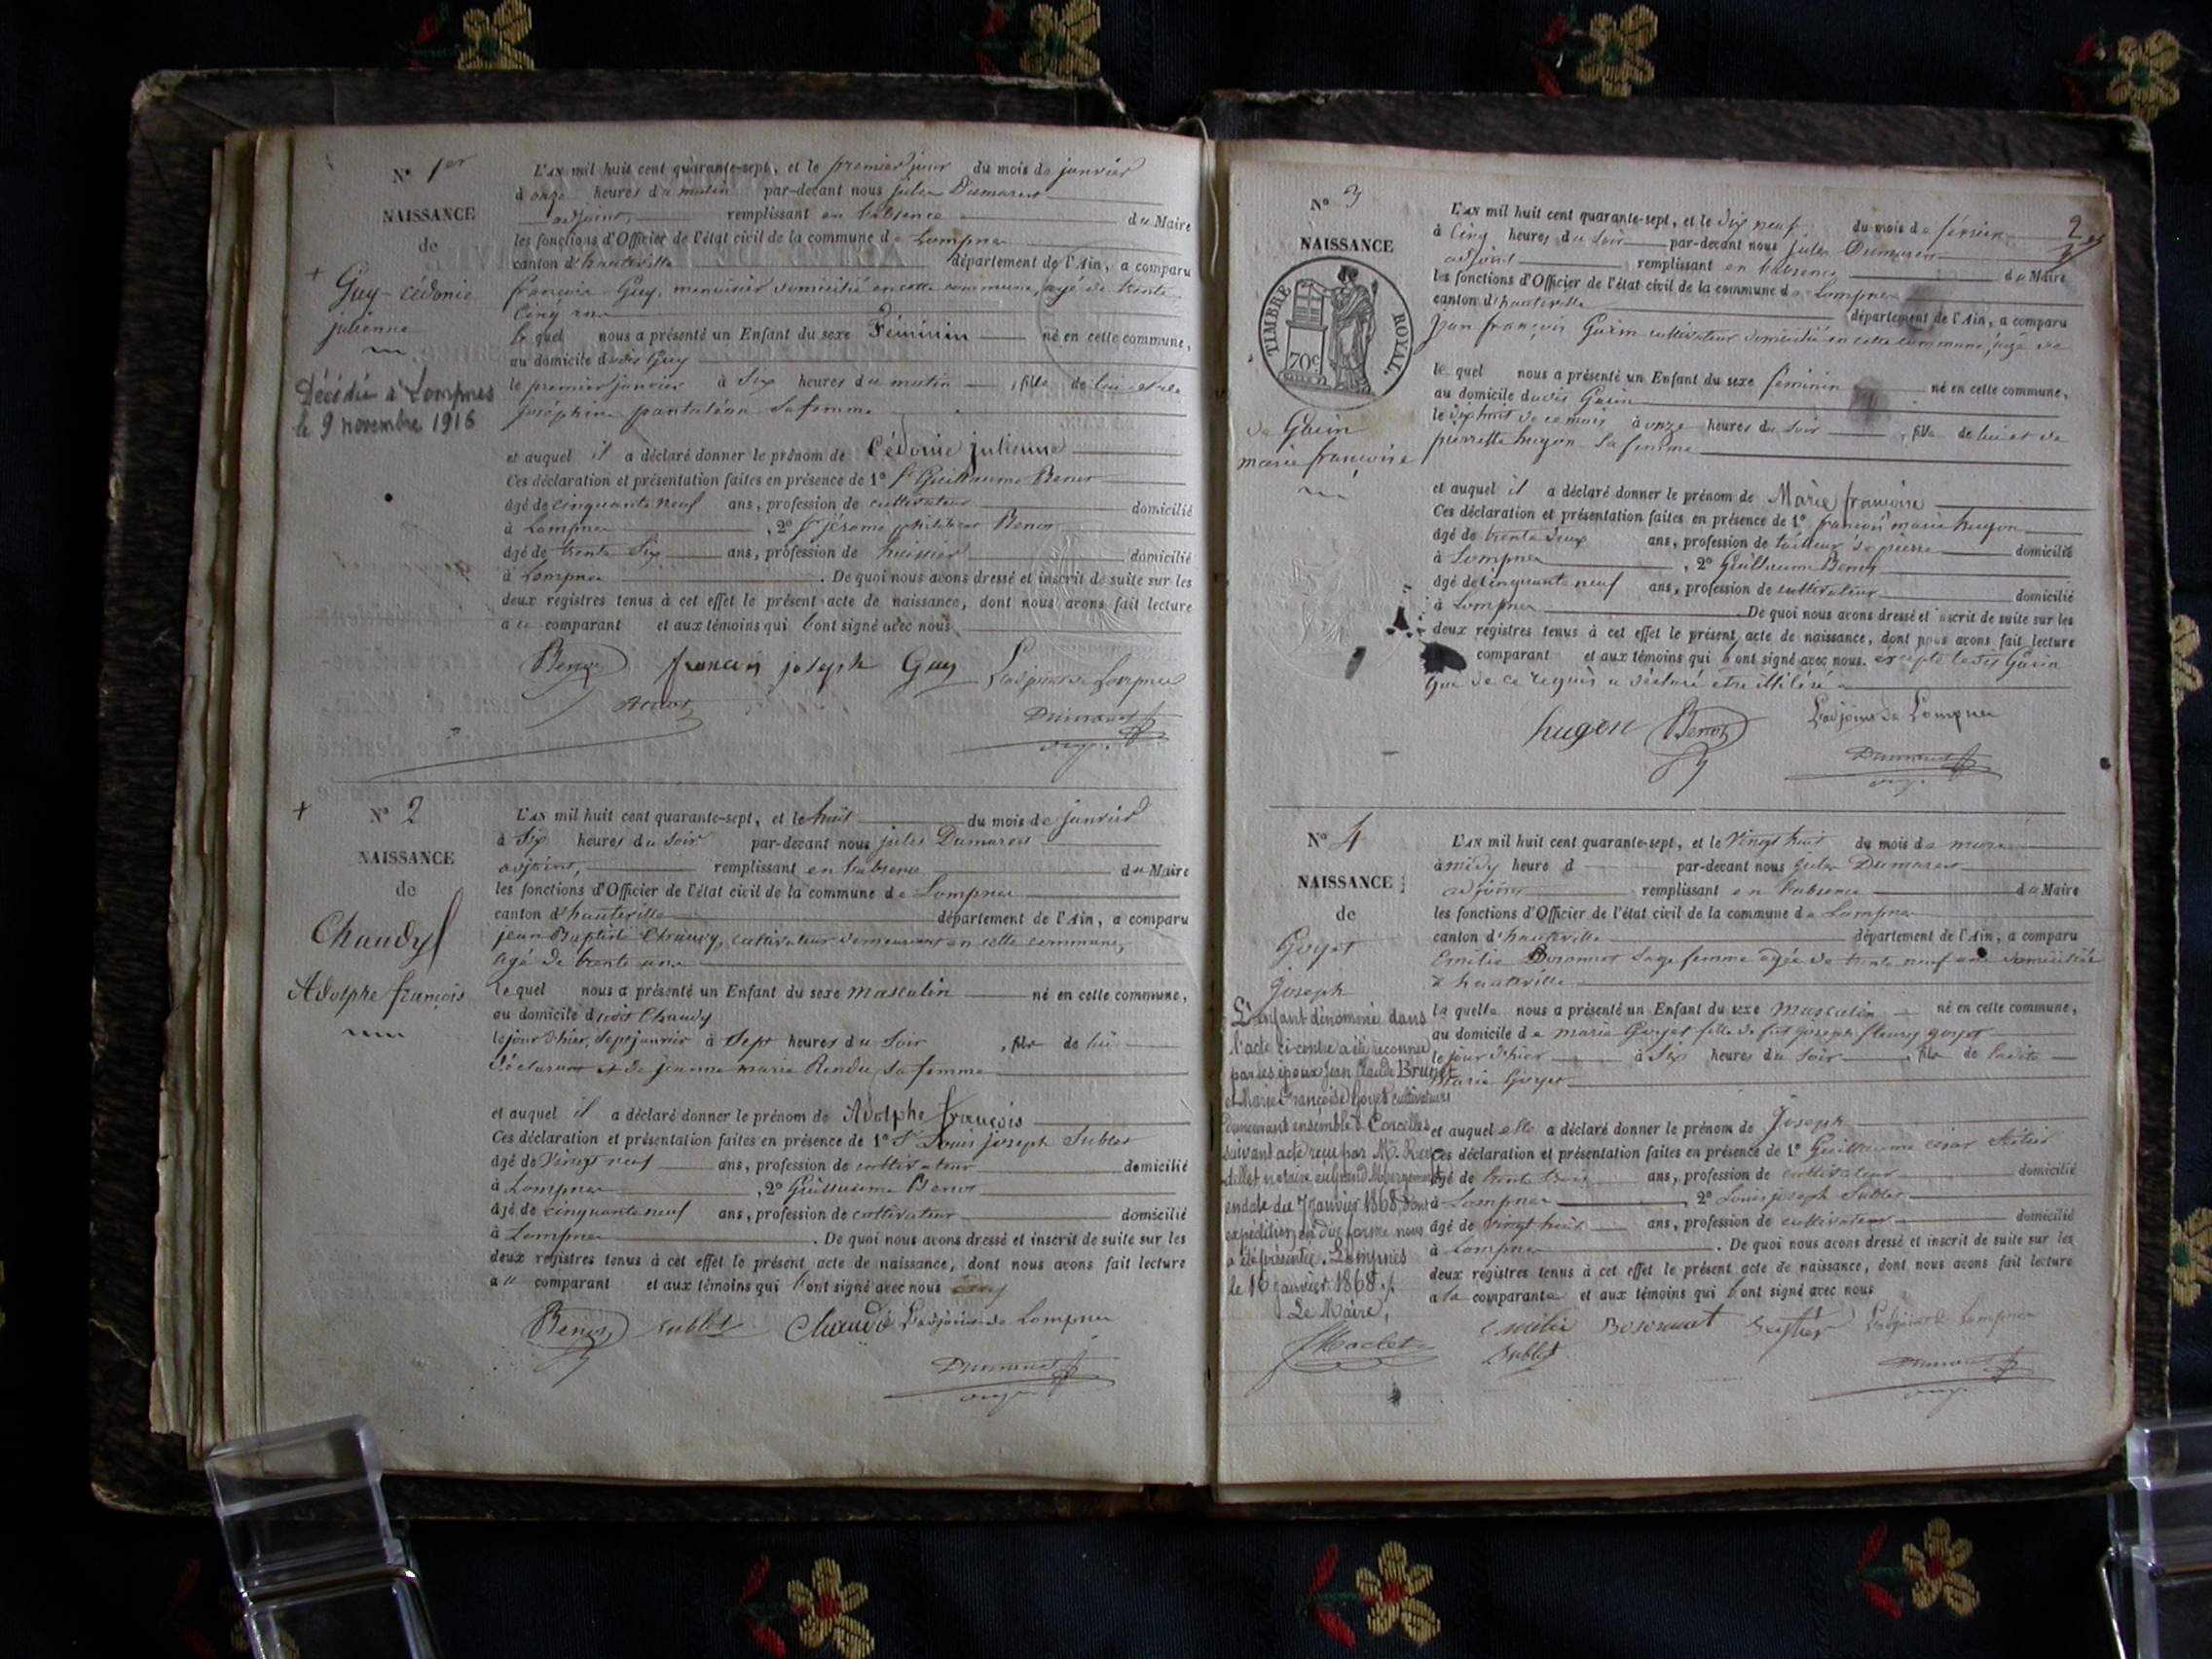 N° 1er
NAISSANCE
de
Guy cédonie
julienne
Décédée à Lompnes
le 9 novembre 1916
L'AN mil huit cent quarante-sept, et le premier jour du mois de janvier
à onze heures du matin par-devant nous jules Dumarest
adjoint, remplissant en l'absence du Maire
les fonctions d'Officier de l'état civil de la commune de Lompnes
canton d'hauteville département de l'Ain, a comparu
françois Guy, menuisier domicilié en cette commune, agé de trente
cinq ans
le quel nous a présenté un Enfant du sexe Féminin né en cette commune,
au domicile dudit Guy
le premier janvier à Six heures du matin , fille de lui et de
joséphine pantaléon sa femme
et auquel il a déclaré donner le prénom de Cédonie julienne
Ces déclaration et présentation faites en présence de 1° Sr Guillaume Benoit
âgé de cinquante neuf ans, profession de cultivateur domicilié
à Lompnes , 2° Sr jérome philibert Benoit
âgé de trente Six ans, profession de huissier domicilié
à Lompnes . De quoi nous avons dressé et inscrit de suite sur les
deux registres tenus à cet effet le présent acte de naissance, dont nous avons fait lecture
a ce comparant et aux témoins qui l'ont signé avec nous
Benoit francois joseph Guy L'adjoint de Lompnes
Benoit
Dumarest
N° 2
NAISSANCE
de
Chaudy
Adolphe françois
L'AN mil huit cent quarante-sept, et le huit du mois de janvier
à Six heures du Soir par-devant nous jules Dumarest
adjoint, remplissant en l'absence du Maire
les fonctions d'Officier de l'état civil de la commune de Lompnes
canton d'hauteville département de l'Ain, a comparu
jean Baptiste Chaudy, cultivateur demeurant en cette commune,
agé de trente un
le quel nous a présenté un Enfant du sexe masculin né en cette commune,
au domicile dudit Chaudy
le jour d'hier, sept janvier à Sept heures du Soir , fils de lui
déclarant et de jeanne marie Rendu sa femme
et auquel il a déclaré donner le prénom de Adolphe françois
Ces déclaration et présentation faites en présence de 1° Sr Louis joseph Sublet
âgé de Vingt neuf ans, profession de cultivateur domicilié
à Lompnes , 2° Guillaume Benoit
âgé de cinquante neuf ans, profession de cultivateur domicilié
à Lompnes . De quoi nous avons dressé et inscrit de suite sur les
deux registres tenus à cet effet le présent acte de naissance, dont nous avons fait lecture
a comparant et aux témoins qui l'ont signé avec nous
Benoit Sublet Chaudi L'adjoint de Lompnes
Dumarest
2
N° 3
NAISSANCE
TIMBRE ROYAL.
70c
de Guin
marie françoise
L'AN mil huit cent quarante-sept, et le dix neuf du mois de février
à Cinq heures du Soir par-devant nous Jules Dumarest
adjoint remplissant en l'absence du Maire
les fonctions d'Officier de l'état civil de la commune de Lompnes
canton d'hauteville département de l'Ain, a comparu
jean françois Guin cultivateur domicilié en cette commune, agé de
le quel nous a présenté un Enfant du sexe féminin né en cette commune,
au domicile dudit Guin
le dix huit de ce mois à onze heures du Soir , fille de lui et de
pierrette hugon sa femme
et auquel il a déclaré donner le prénom de Marie françoise
Ces déclaration et présentation faites en présence de 1° françois marie hugon
âgé de trente deux ans, profession de tailleur de pierre domicilié
à Lompnes , 2° Guillaume Benoit
âgé de cinquante neuf ans, profession de cultivateur domicilié
à Lompnes De quoi nous avons dressé et inscrit de suite sur les
deux registres tenus à cet effet le présent acte de naissance, dont nous avons fait lecture
comparant et aux témoins qui l'ont signé avec nous. excepté ledit Guin
que de ce requis a déclaré être illitéré
hugon Benoit L'adjoint de Lompnes
Dumarest
N° 4
NAISSANCE
de
Goyet
Joseph
L'enfant dénommé dans
l'acte ci-contre a été reconnu
par les époux Jean Claude Brunet
et Marie Françoise Goyet cultivateurs
demeurant ensemble à Corcelles
suivant acte reçu par Me
notaire au grand Abergement
en date du 7 janvier 1868 dont
expédition en due forme nous
a été présentée. Lompnes
le 16 janvier 1868.
Le Maire,
L'AN mil huit cent quarante-sept, et le Vingt huit du mois de mars
à midy heure d par-devant nous Jules Dumarest
adjoint remplissant en l'absence du Maire
les fonctions d'Officier de l'état civil de la commune de Lompnes
canton d'hauteville département de l'Ain, a comparu
Emilie Bosonnet Sage femme agée de trente neuf ans domiciliée
à hauteville
la quelle nous a présenté un Enfant du sexe masculin né en cette commune,
au domicile de marie Goyet fille de fut joseph fleury goyet
le jour d'hier à Six heures du Soir , fils de ladite
Marie Goyet
et auquel elle a déclaré donner le prénom de Joseph
Ces déclaration et présentation faites en présence de 1° Guillaume césar
âgé de trente trois ans, profession de cultivateur domicilié
à Lompnes 2° Louis joseph Sublet
âgé de Vingt huit ans, profession de cultivateur domicilié
à Lompnes . De quoi nous avons dressé et inscrit de suite sur les
deux registres tenus à cet effet le présent acte de naissance, dont nous avons fait lecture
a la comparante et aux témoins qui l'ont signé avec nous
Emilie Bosonnet L'adjoint de Lompnes
Sublet
Dumarest